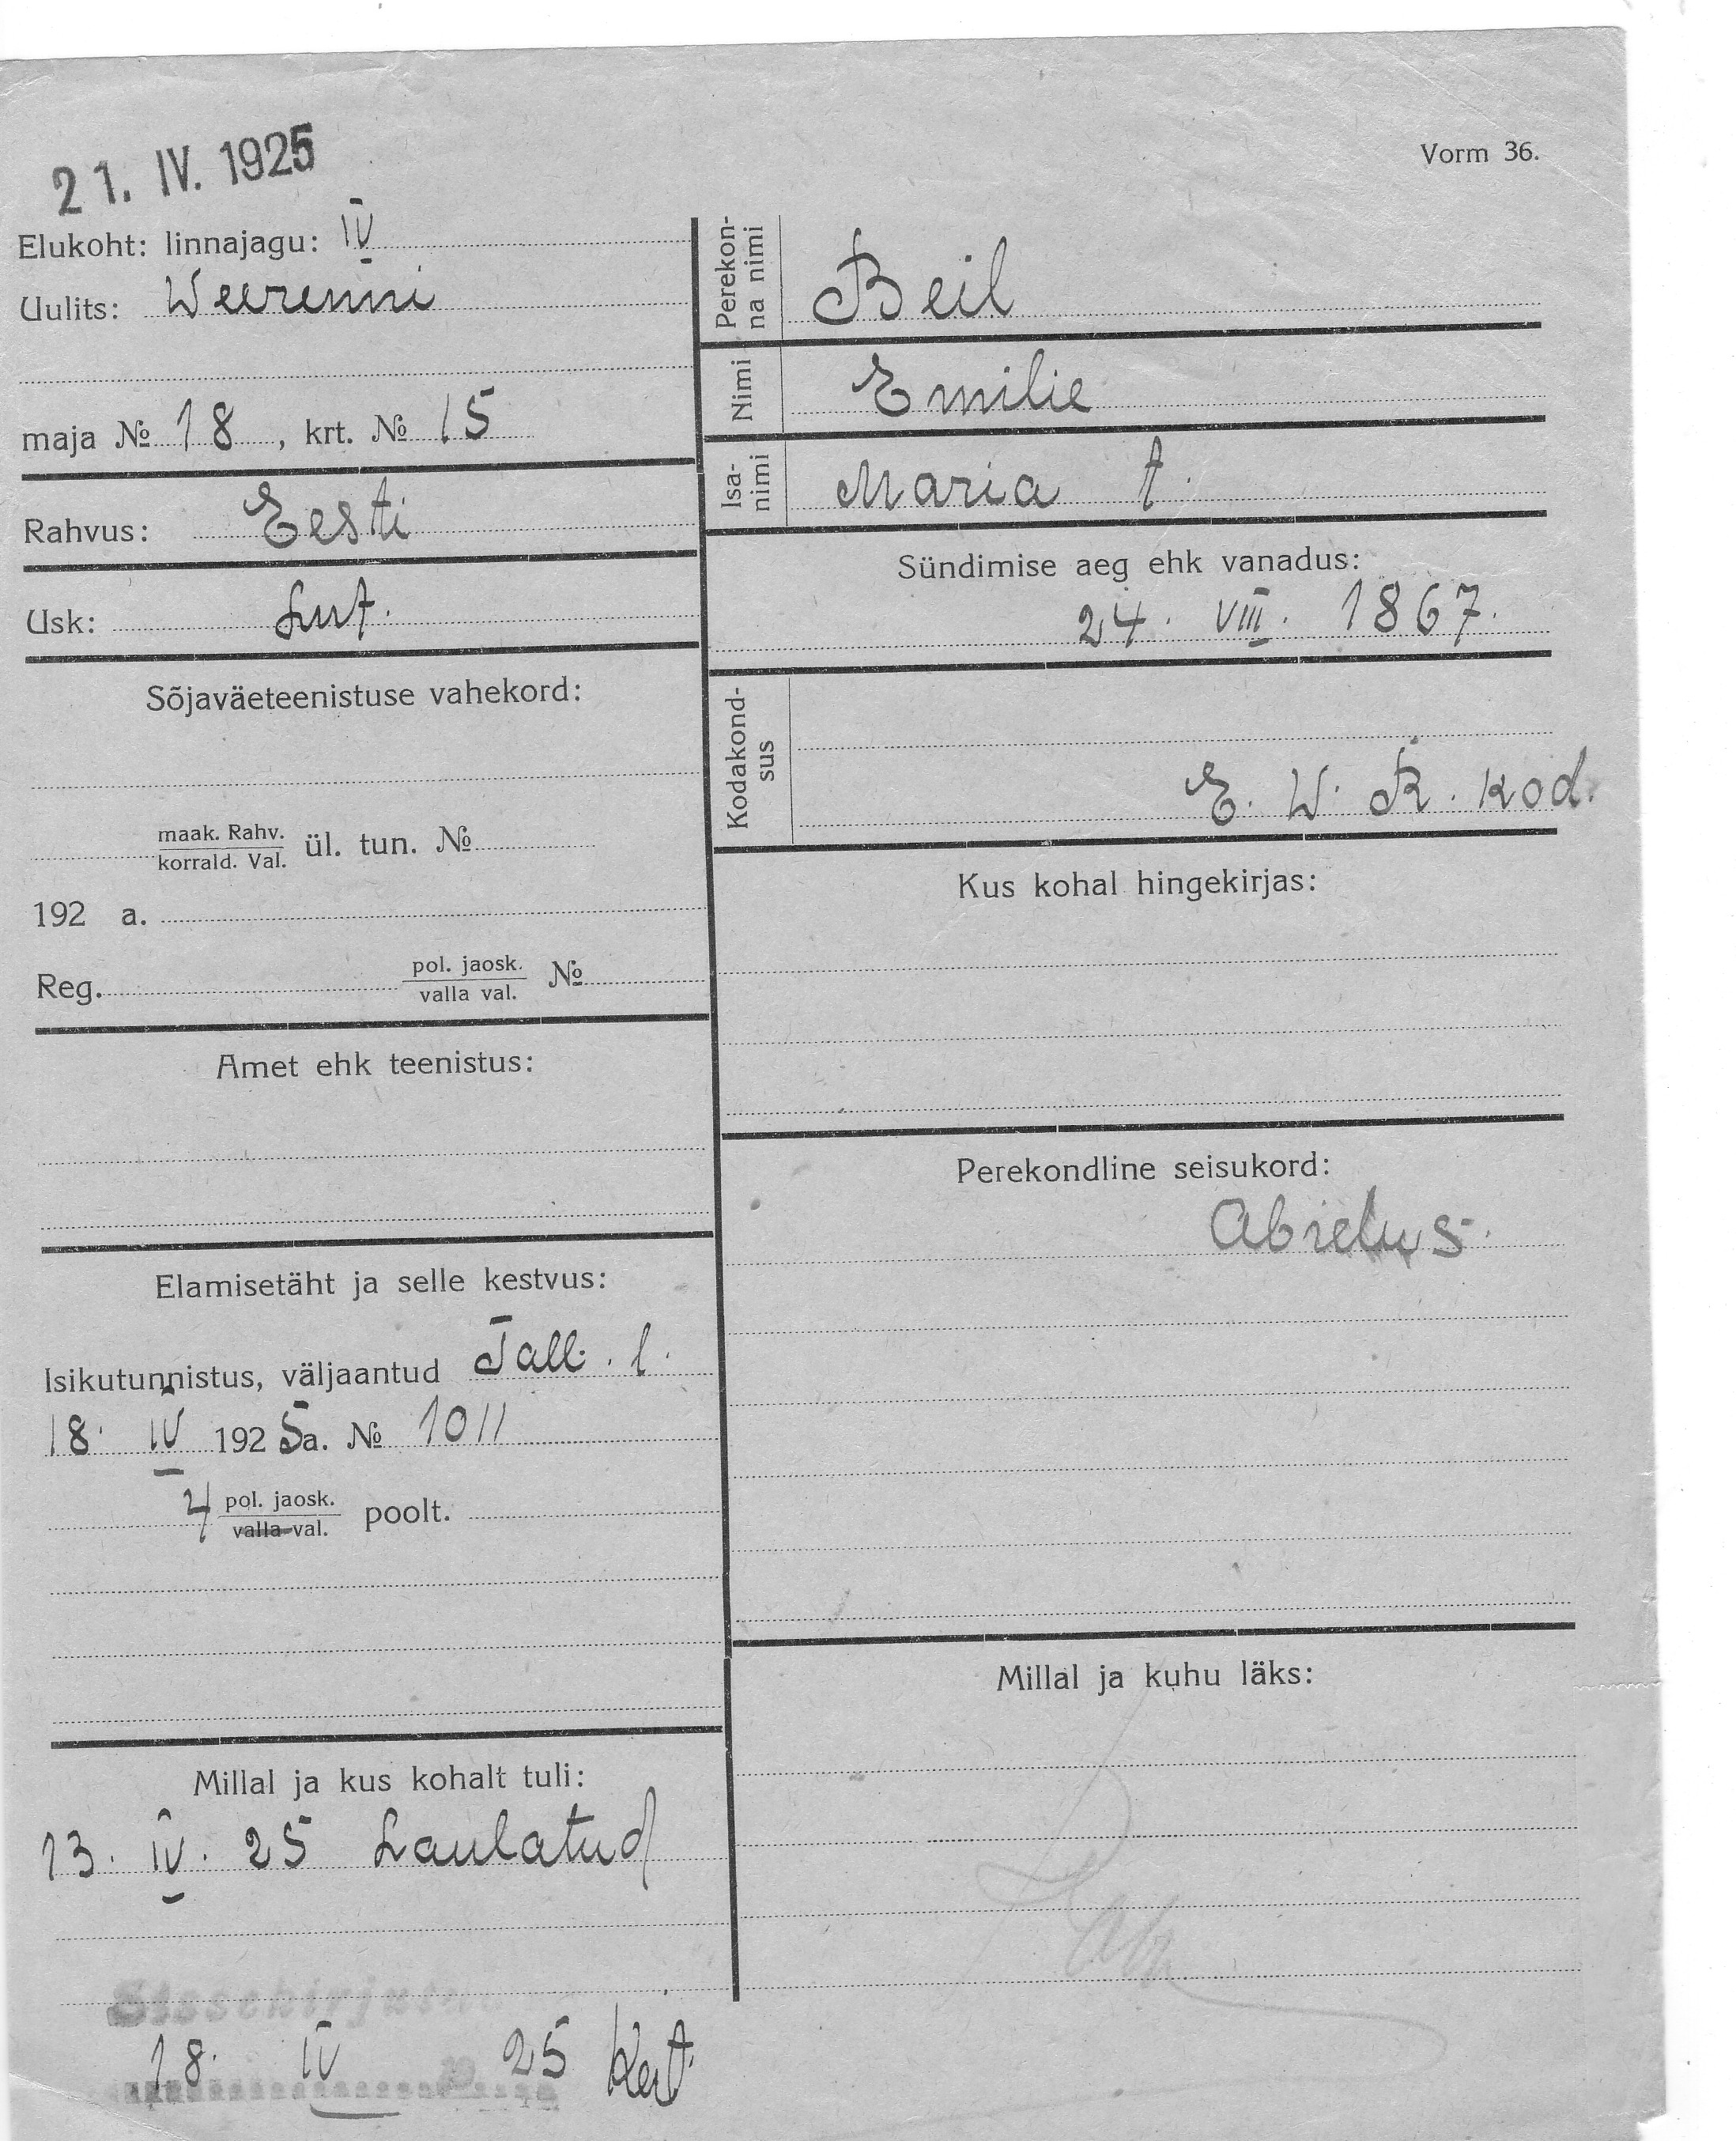 21. IV. 1925
Vorm 36.
Elukoht: linnajagu: IV
Uulits: Weerenni
maja № 18, krt. № 15
Rahvus: Eesti
Usk: Lut.
Sõjaväeteenistuse vahekord:
maak. Rahv.
korrald. Val. ül. tun. №
192 a.
Reg. pol. jaosk.
valla val. №
Amet ehk teenistus:
Elamisetäht ja selle kestvus:
Isikutunnistus, väljaantud Tall. l.
18. IV 1925a. № 1011
4 pol. jaosk.
valla val. poolt.
Millal ja kus kohalt tuli:
13. IV. 25 Laulatud
Sissekirjutatud
18. IV 25
Perekon-
na nimi Beil
Nimi Emilie
Isa-
nimi Maria t.
Sündimise aeg ehk vanadus:
24. VIII. 1867.
Kodakond-
sus
E. W. R. kod.
Kus kohal hingekirjas:
Perekondline seisukord:
Abielus.
Millal ja kuhu läks: